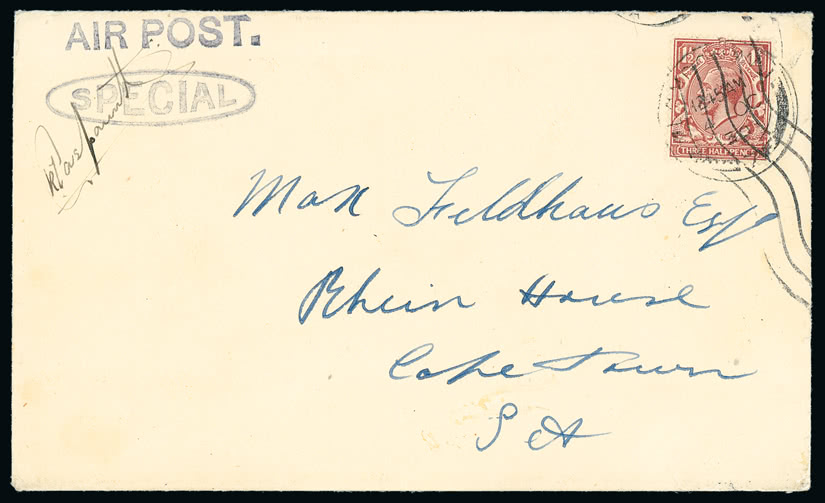 AIR POST.
SPECIAL
THREE HALFPENCE
12.15 AM
4 OC
Max Feldhaus Esq
Rhein House
Cape Town
S A